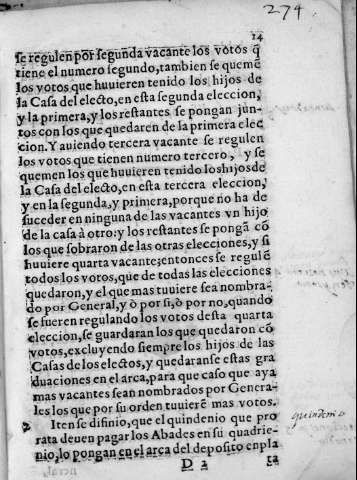 274
14
se regulen por segunda vacante los votos q̃
tiene el numero segundo, tambien se quemẽ
los votos que huuieren tenido los hijos de
la Casa del electo, en esta segunda eleccion,
y la primera, y los restantes se pongan jun-
tos con los que quedaren de la primera elec
cion. Y auiendo tercera vacante se regulen
los votos que tienen numero tercero, y se
quemen los que huuieren tenido los hijos de
la Casa del electo, en esta tercera eleccion,
y en la segunda, y primera, porque no ha de
suceder en ninguna de las vacantes vn hijo
de la casa à otro: y los restantes se pongã cõ
los que sobraron de las otras elecciones, y si
huuiere quarta vacante; entonces se regulẽ
todos los votos, que de todas las elecciones
quedaron, y el que mas tuuiere sea nombra-
do por General, y ò por si, ò por no, quando
se fueren regulando los votos desta quarta
eleccion, se guardaran los que quedaron cõ
votos, excluyendo siempre los hijos de las
Casas de los electos, y quedaranse estas gra
duaciones en el arca, para que caso que aya
mas vacantes sean nombrados por Genera-
les los que por su orden tuuierẽ mas votos.
Iten se difinio, que el quindenio que pro
rata deuen pagar los Abades en su quadrie-
nio, lo pongan en el arca del deposito en pla
D 2
ta
quindenio